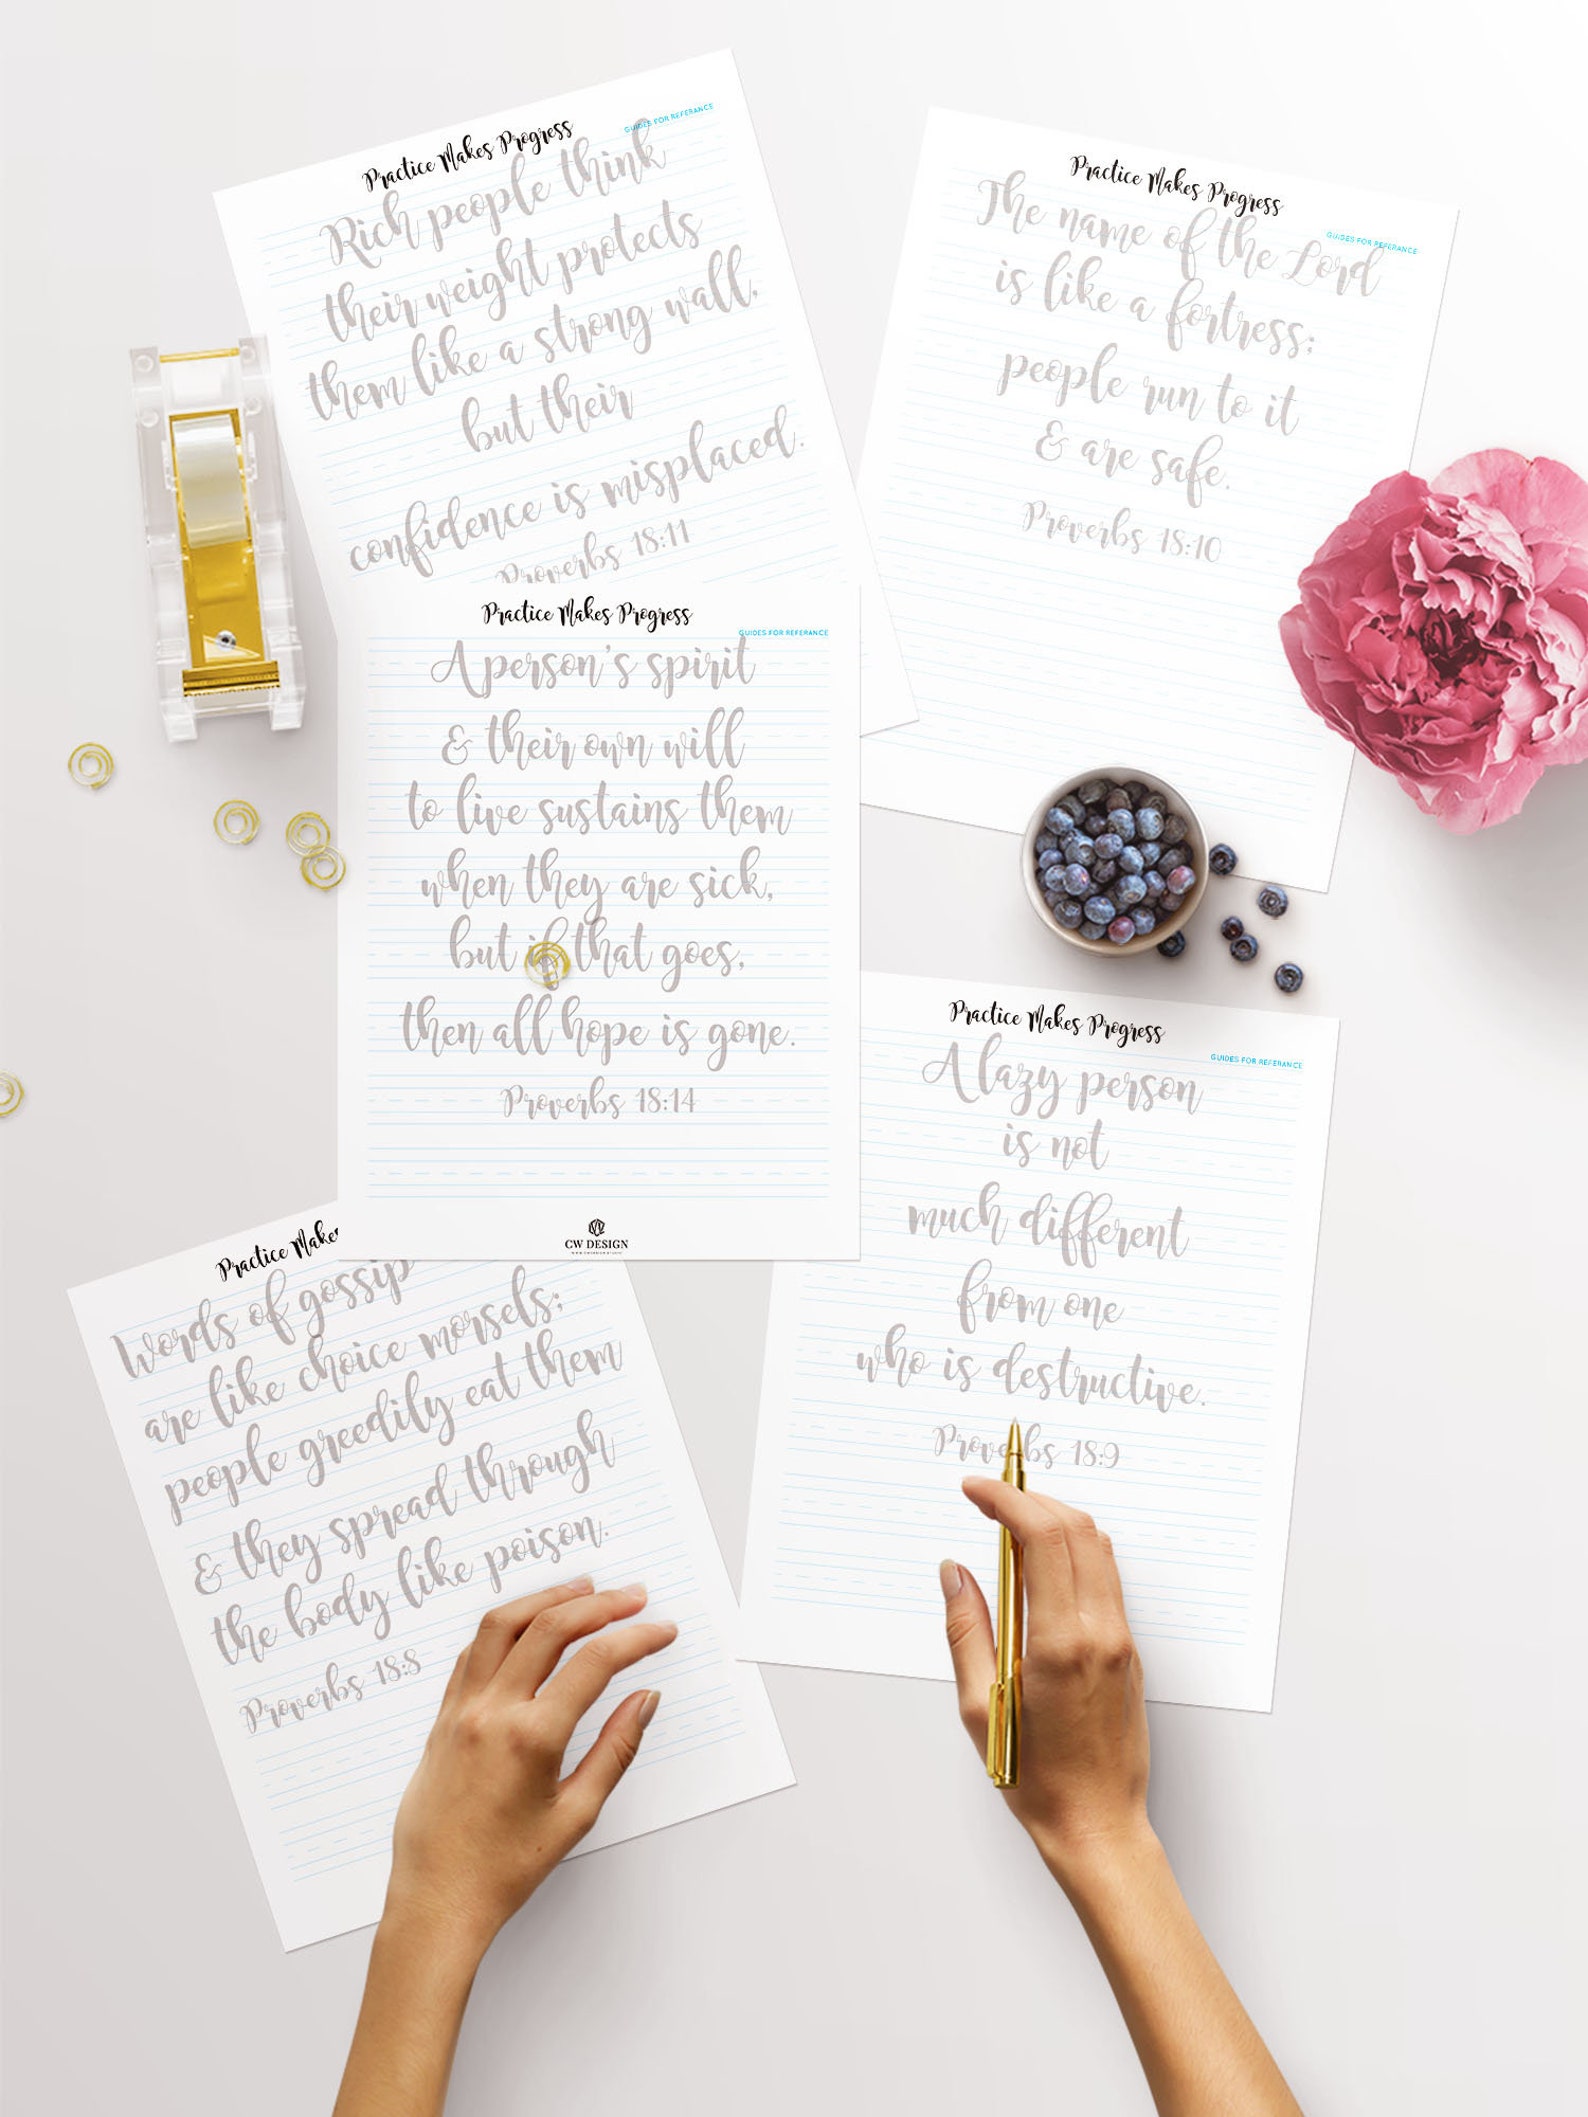 Practice Makes Progress
GUIDES FOR REFERANCE
Rich people think
their weight protects
them like a strong wall,
but their
confidence is misplaced.
Proverbs 18:11
Practice Makes Progress
GUIDES FOR REFERANCE
The name of the Lord
is like a fortress;
people run to it
& are safe.
Proverbs 18:10
Practice Makes Progress
GUIDES FOR REFERANCE
A person's spirit
& their own will
to live sustains them
when they are sick,
but if that goes,
then all hope is gone.
Proverbs 18:14
CW DESIGN
Practice Makes Progress
GUIDES FOR REFERANCE
A lazy person
is not
much different
from one
who is destructive.
Proverbs 18:9
Practice Make
Words of gossip
are like choice morsels;
people greedily eat them
& they spread through
the body like poison.
Proverbs 18:8